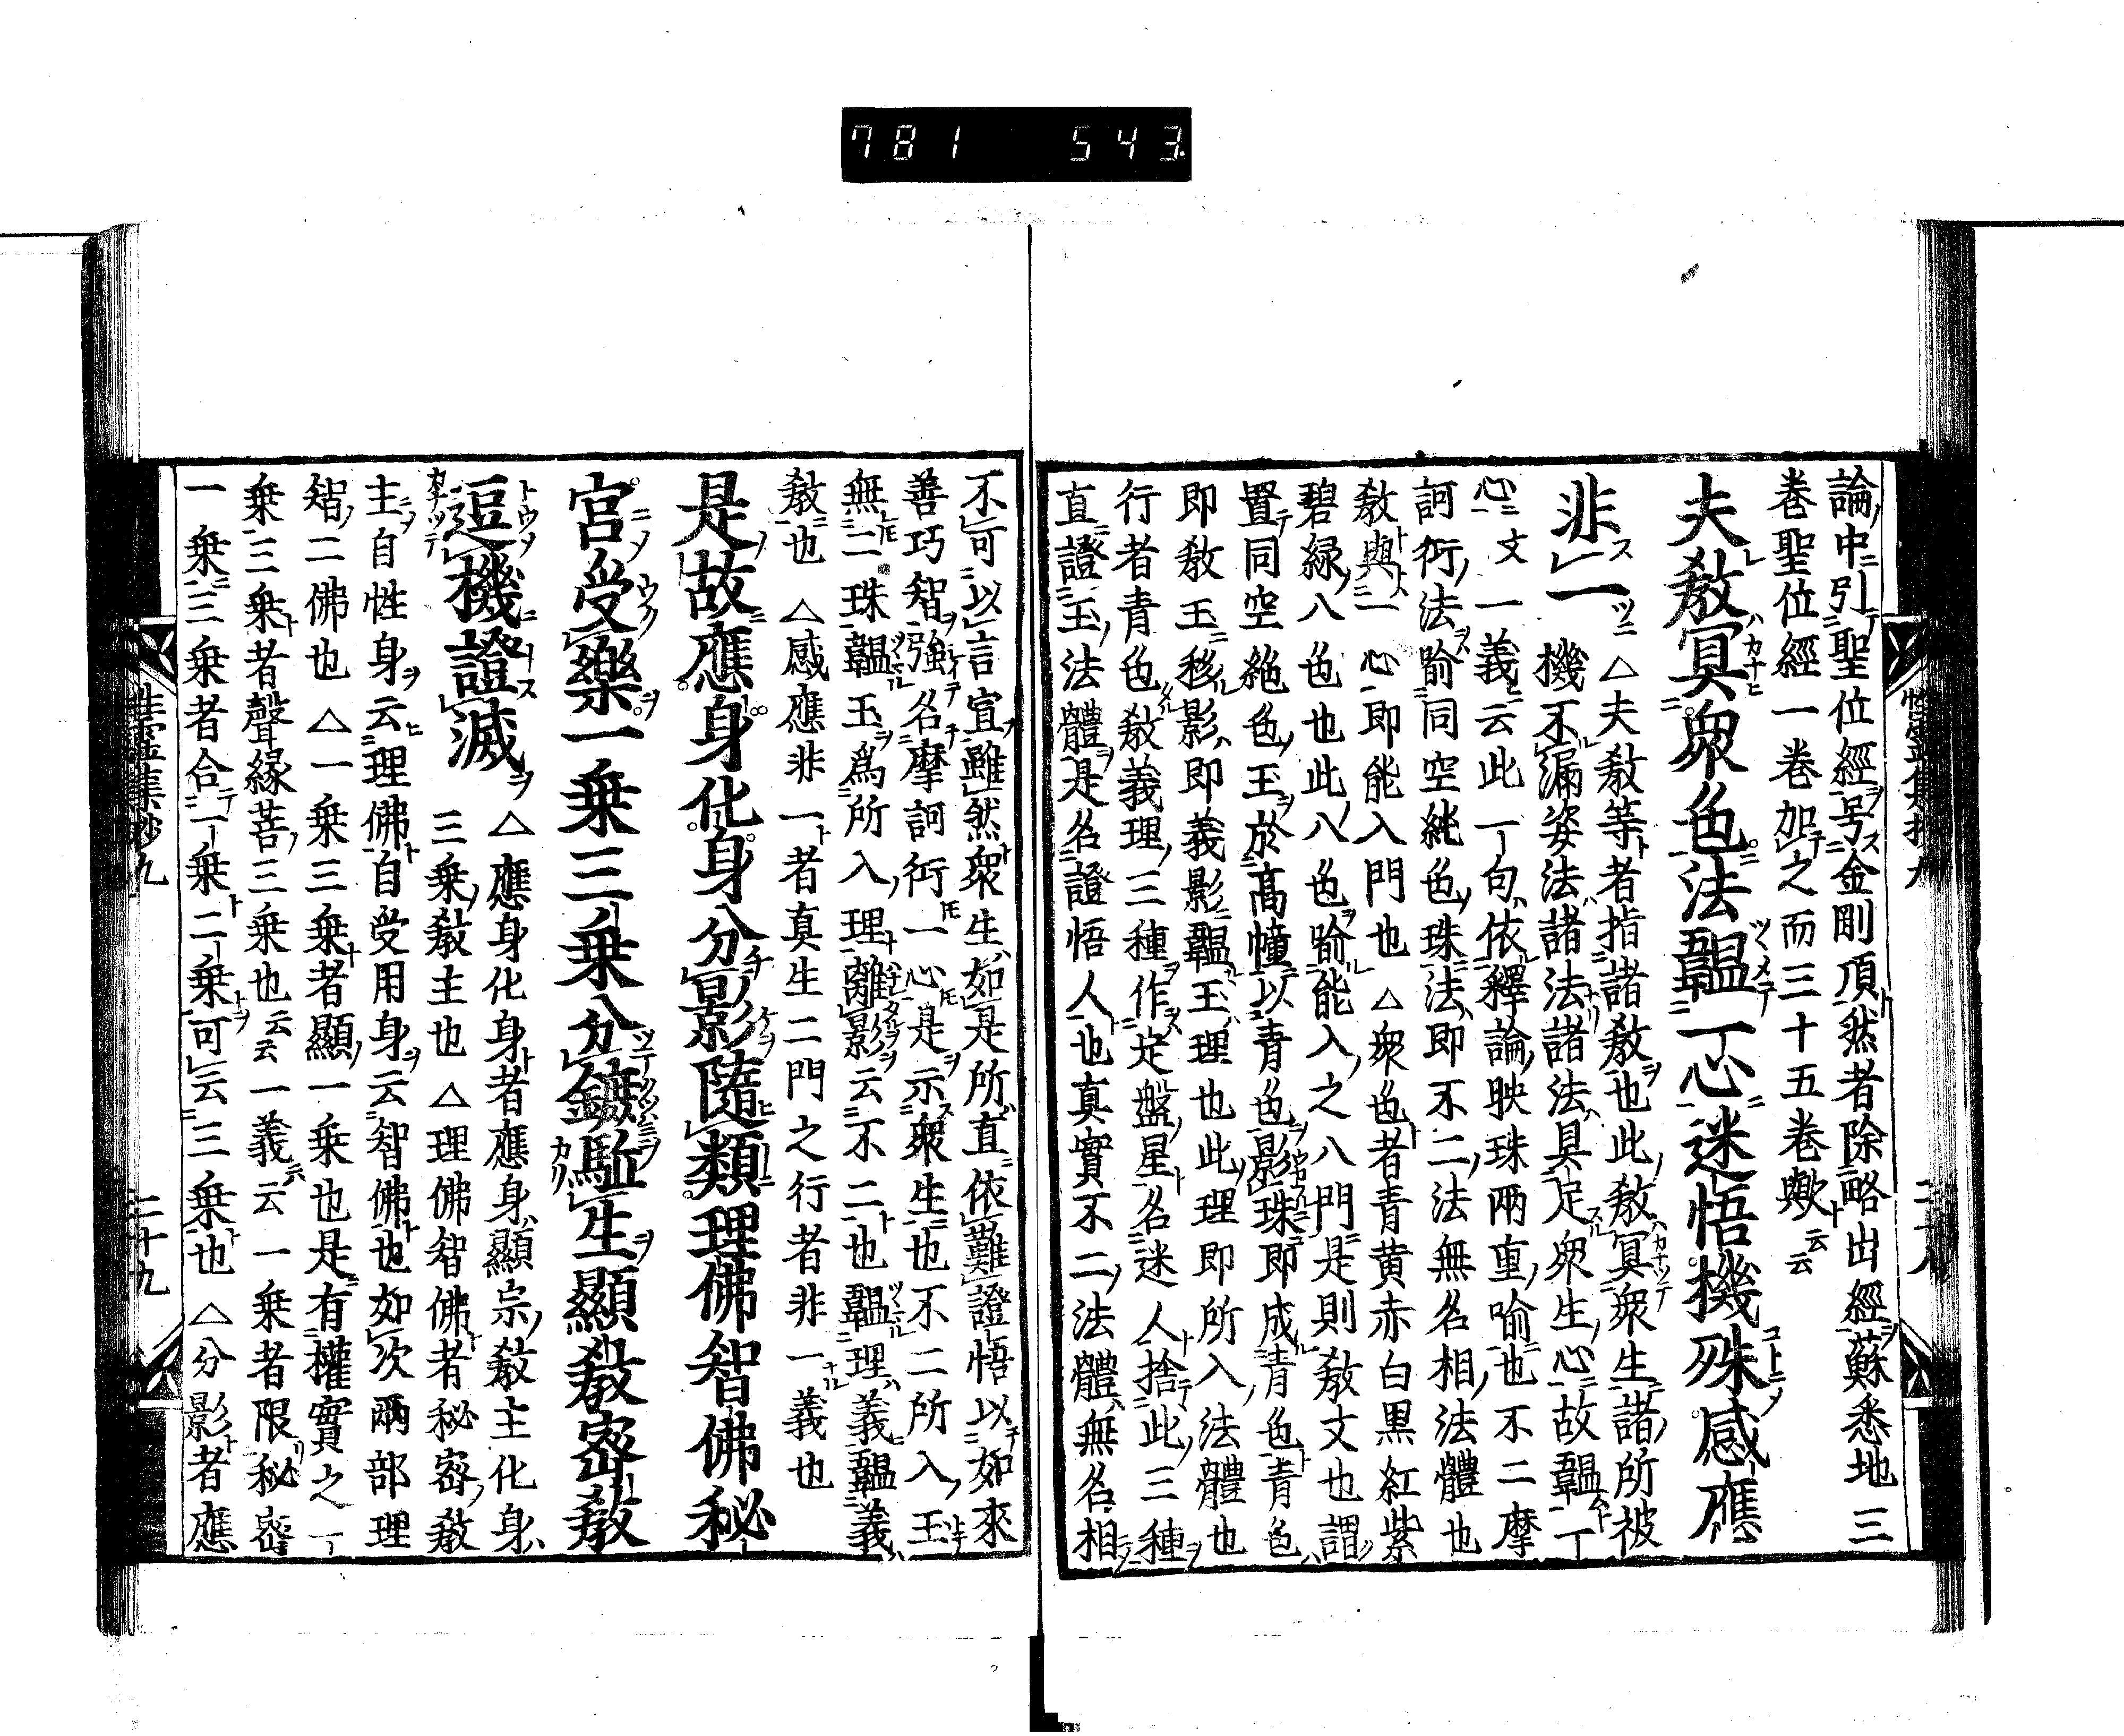 781 543
論中引聖位經号金剛頂然者除略出經蘇悉地三
卷聖位經一卷加之而三十五卷歟云云
夫教冥衆色法韞一心迷悟機殊感應
非一 △夫教等者指諸教也此教冥衆生諸所被
機不漏姿法諸法諸法具足衆生心故韞一
心文一義云此一句依釋論映珠兩重喻也不二摩
訶衍法喻同空絶色珠法即不二法無名相法體也
教與一心即能入門也 △衆色者青黄赤白黒紅紫
碧緑八色也此八色喻能入之八門是則教文也謂
置同空絶色玉於髙幢以青色影珠即成青色青色
即教玉移影即義影韞玉理也此理即所入法體也
行者青色教義理三種作定盤星名迷人捨此三種
直證玉法體是名證悟人也真實不二法體無名相
性靈集抄九 二十八
不可以言宣雖然衆生如是所直依難證悟以如來
善巧智強名摩訶衍一心是示衆生也不二所入玉
無二珠韞玉爲所入理離影云不二也韞理義韞義
教也 △感應非一者真生二門之行者非一義也
是故應身化身分影隨類理佛智佛秘
宮受樂一乗三乗分鑣駈生顯教宻教
逗機證滅 △應身化身者應身顯宗教主化身
三乗教主也 △理佛智佛者秘宻教
主自性身云理佛自受用身云智佛也如次兩部理
智二佛也 △一乗三乗者顯一乗也是有權實之一
乗三乗者聲緣菩三乗也云云一義云一乗者限秘宻
一乗三乗者合一乗二乗可云三乗也 △分影者應
性靈集抄九 二十九